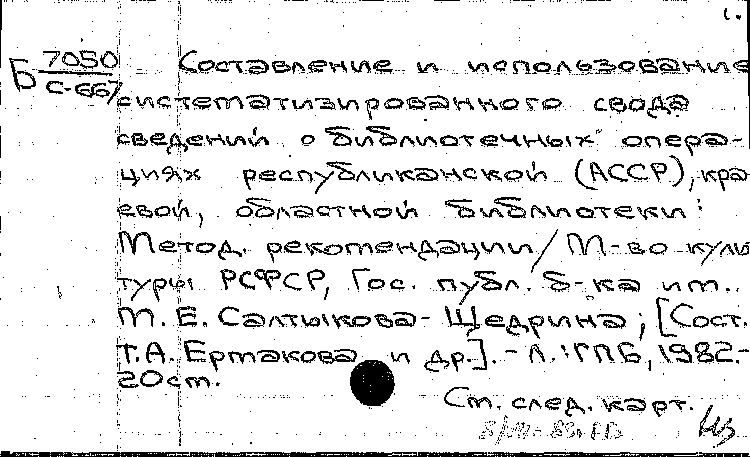 1.
Б 7050
С-667
Составление и использование
систематизированного свода
сведений о библиотечных опера-
циях республиканской (АССР), кра-
евой, областной библиотеки:
Метод. рекомендации / М-во куль
туры РСФСР, Гос. публ. б-ка им.
М. Е. Салтыкова-Щедрина; [Сост.
Т.А. Ермакова и др.]. - Л.: ГПБ, 1982.-
20 см.
См. след. карт.